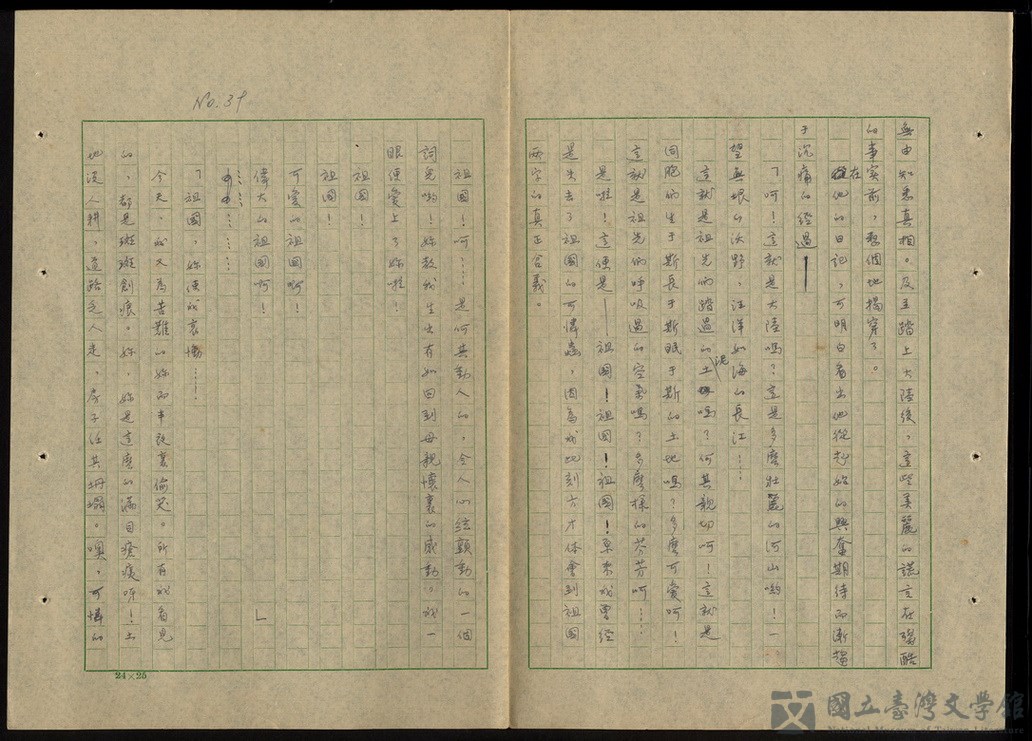 No. 39
無由知悉真相。及至踏上大陸後，這些美麗的謊言在殘酷
的事實前，整個地揭穿了。
在他的日記，可明白看出他從起始的興奮期待而漸趨
于沉痛的經過——
「呵！這就是大陸嗎？這是多麼壯麗的河山喲！一
望無垠的沃野，汪洋如海的長江……
這就是祖先的踏過的泥土嗎？何其親切呵！這就是
同胞的生于斯長于斯眠于斯的土地嗎？多麼可愛呵！
這就是祖先們呼吸過的空氣嗎？多麼樣的芬芳呵……
是啦！這便是——祖國！祖國！祖國！原來我曾經
是失去了祖國的可憐蟲，因爲我此刻方才体會到祖國
兩字的真正含義。
祖國！呵……是何其動人的，令人心絃顫動的一個
詞兒喲！妳教我生出有如回到母親懷裏的感動。我一
眼便愛上了妳啦！
祖國！
祖國！
可愛的祖國啊！
偉大的祖國呵！
……
「祖國，妳使我哀慟……
今天，我又爲苦難的妳而半夜裏偷哭。所有我看見
的，都是斑斑創痕。妳，妳是這麼的滿目瘡痍呀！土
地沒人耕，道路乏人走，房子任其坍塌。噢，可憐的
24×25
國立臺灣文學館
National Museum of Taiwan Literature